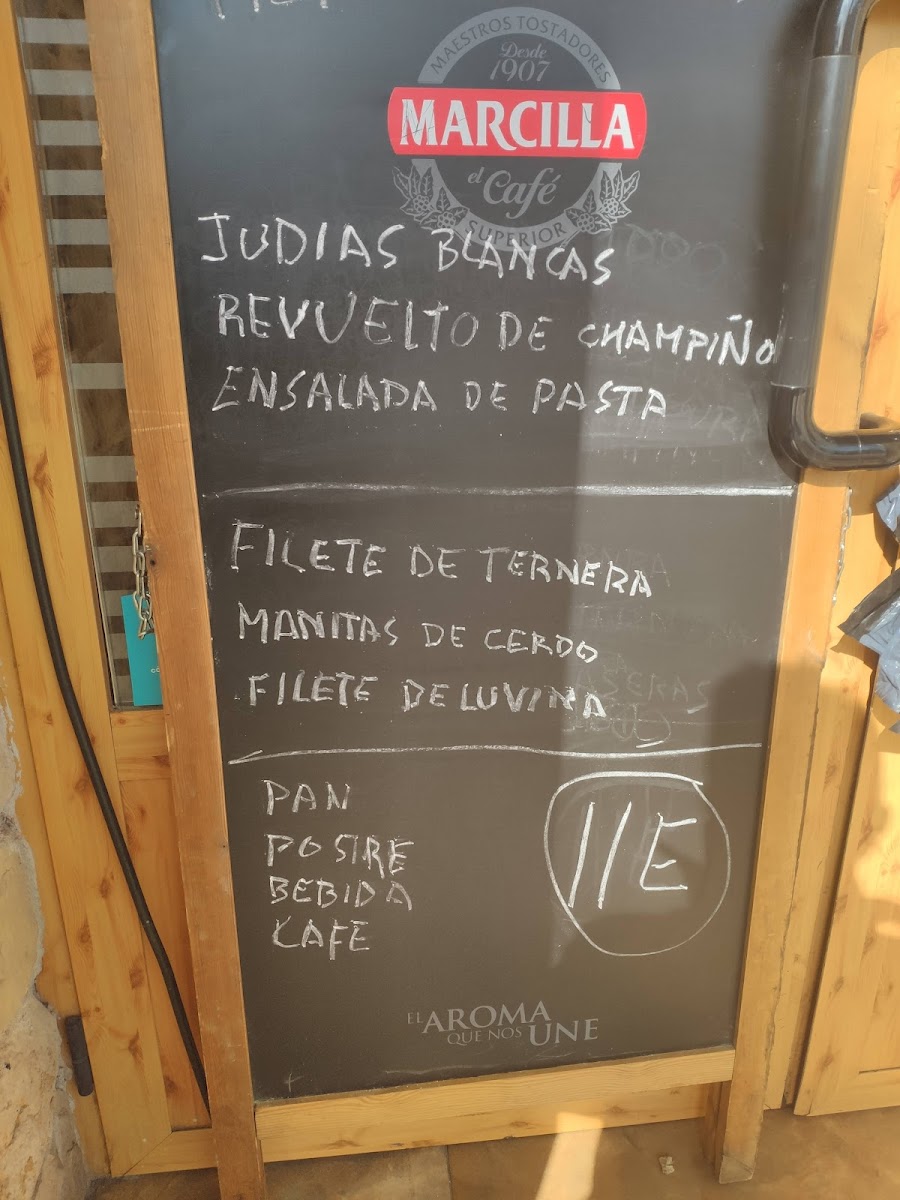 MAESTROS TOSTADORES
Desde
1907
MARCILLA
el Café
SUPERIOR
JUDIAS BLANCAS
REVUELTO DE CHAMPIÑO
ENSALADA DE PASTA
FILETE DE TERNERA
MANITAS DE CERDO
FILETE DE LUVINA
PAN
POSTRE
BEBIDA
CAFE
11E
EL AROMA
QUE NOS UNE